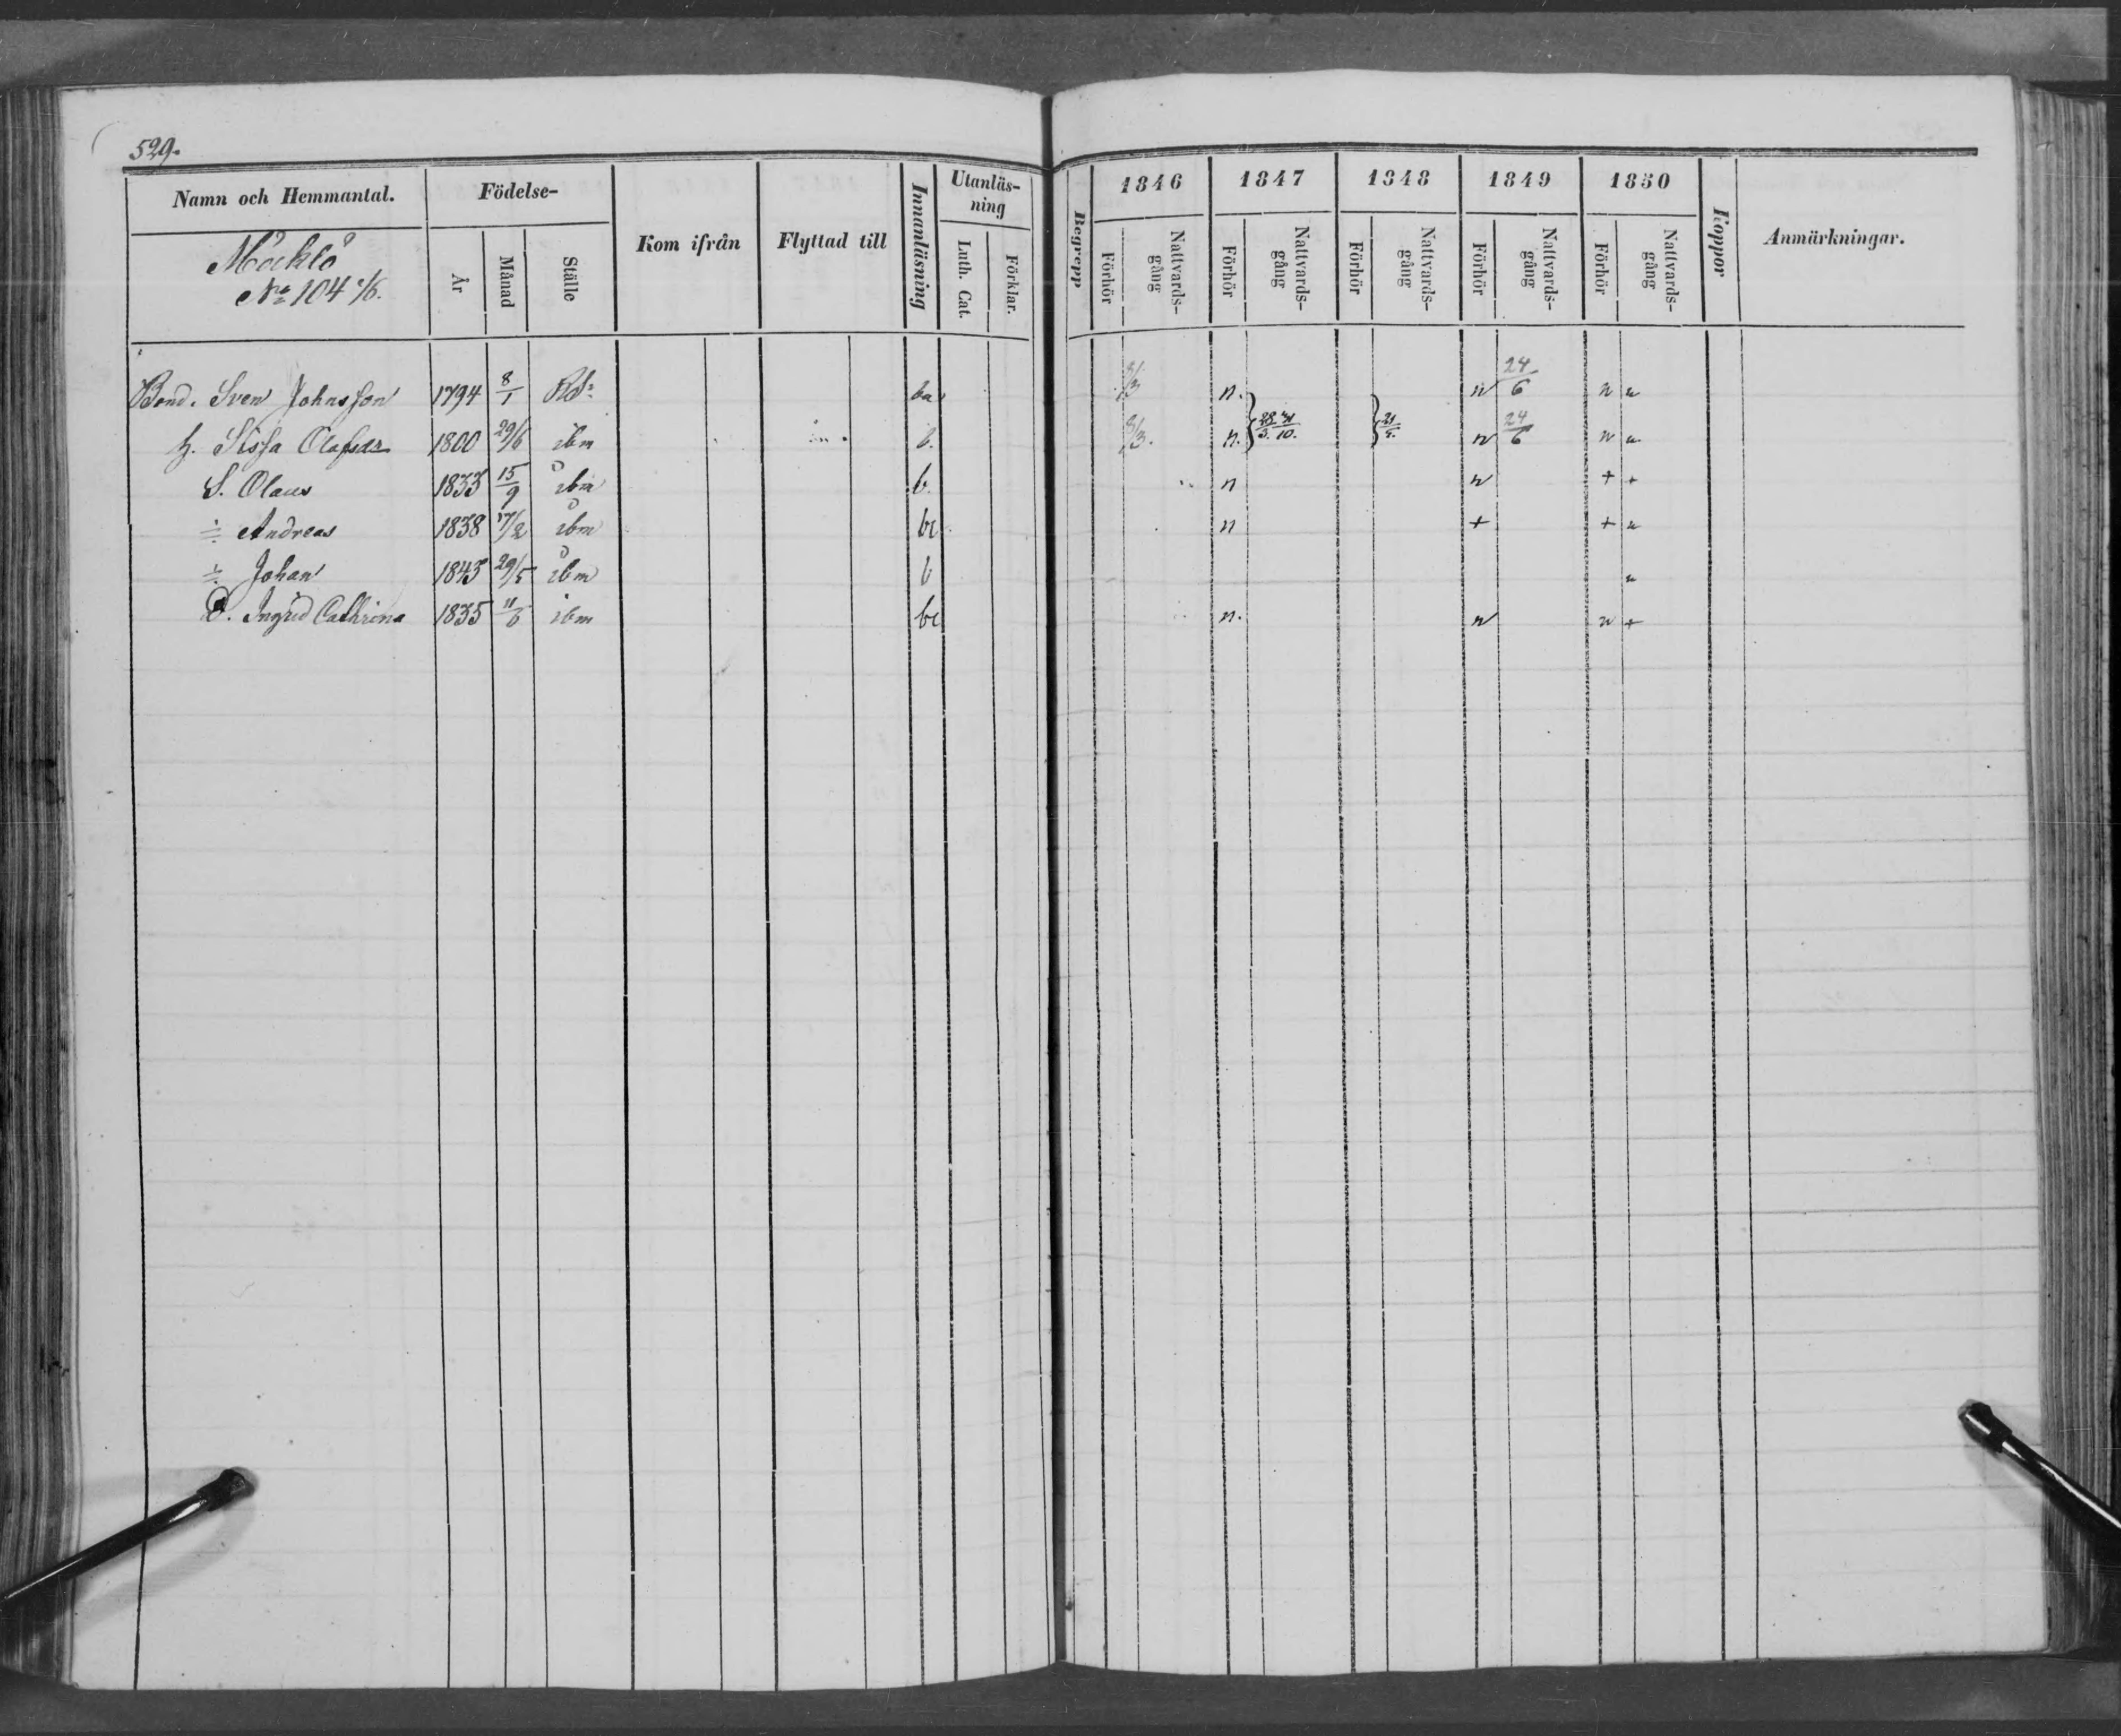 529.
Namn och Hemmantal. Födelse- Kom ifrån Flyttad till Innanläsning Utanläs-ning Begrepp 1846 1847 1848 1849 1850 Koppor Anmärkningar.
År Månad Ställe Luth. Cat. Förklar. Förhör Nattvards-gång Förhör Nattvards-gång Förhör Nattvards-gång Förhör Nattvards-gång Förhör Nattvards-gång
Måcklö
No 104 1/6.
Bond. Sven Johnsson 1794 8/1 Rd: ba 8/3 n. n 24/6 n n
h. Sissa Olafsdr 1800 29/6 ibm b. 8/3. n. 28/3. 10. 21/5. n 24/6 n n
S. Olaus 1833 15/9 ibm b. n n + +
÷ Andreas 1838 17/2 ibm bc n + + n
÷ Johan 1843 29/5 ibm b n
D. Ingrid Cathrina 1835 11/6 ibm bc n. n n +